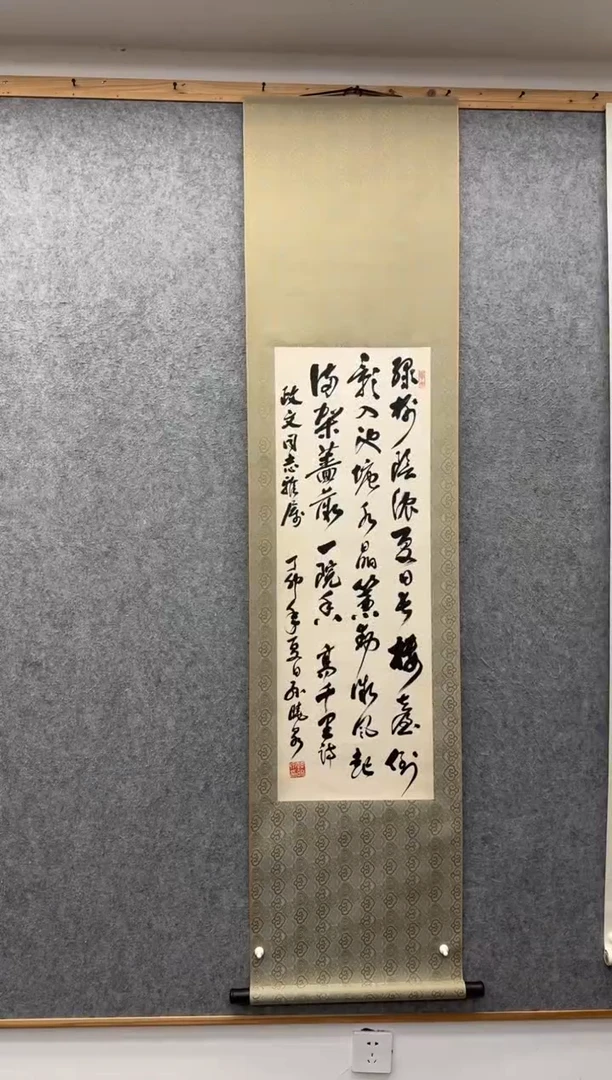 绿树陰浓夏日长楼臺倒
影入池塘水晶簾動微风起
满架薔薇一院香 高千里诗
政文同志雅属 丁卯年夏日孙晓泉